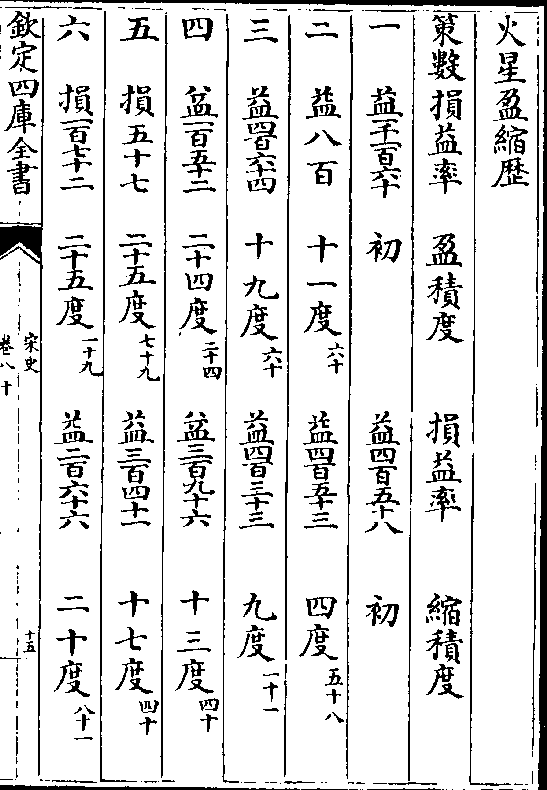 火星盈縮歷
策數 損益率 盈積度 損益率 縮積度
一 益一千一百六十 初 益四百五十八 初
二 益八百 十一度六十 益四百五十三 四度五十八
三 益四百六十四 十九度六十 益四百三十三 九度一十一
四 益一百五十二 二十四度二十四 益三百九十六 十三度四十
五 損五十七 二十五度七十九 益三百四十一 十七度四十
六 損一百七十二 二十五度一十九 益二百六十六 二十度八十一
欽定四庫全書
宋史
卷八十
十五